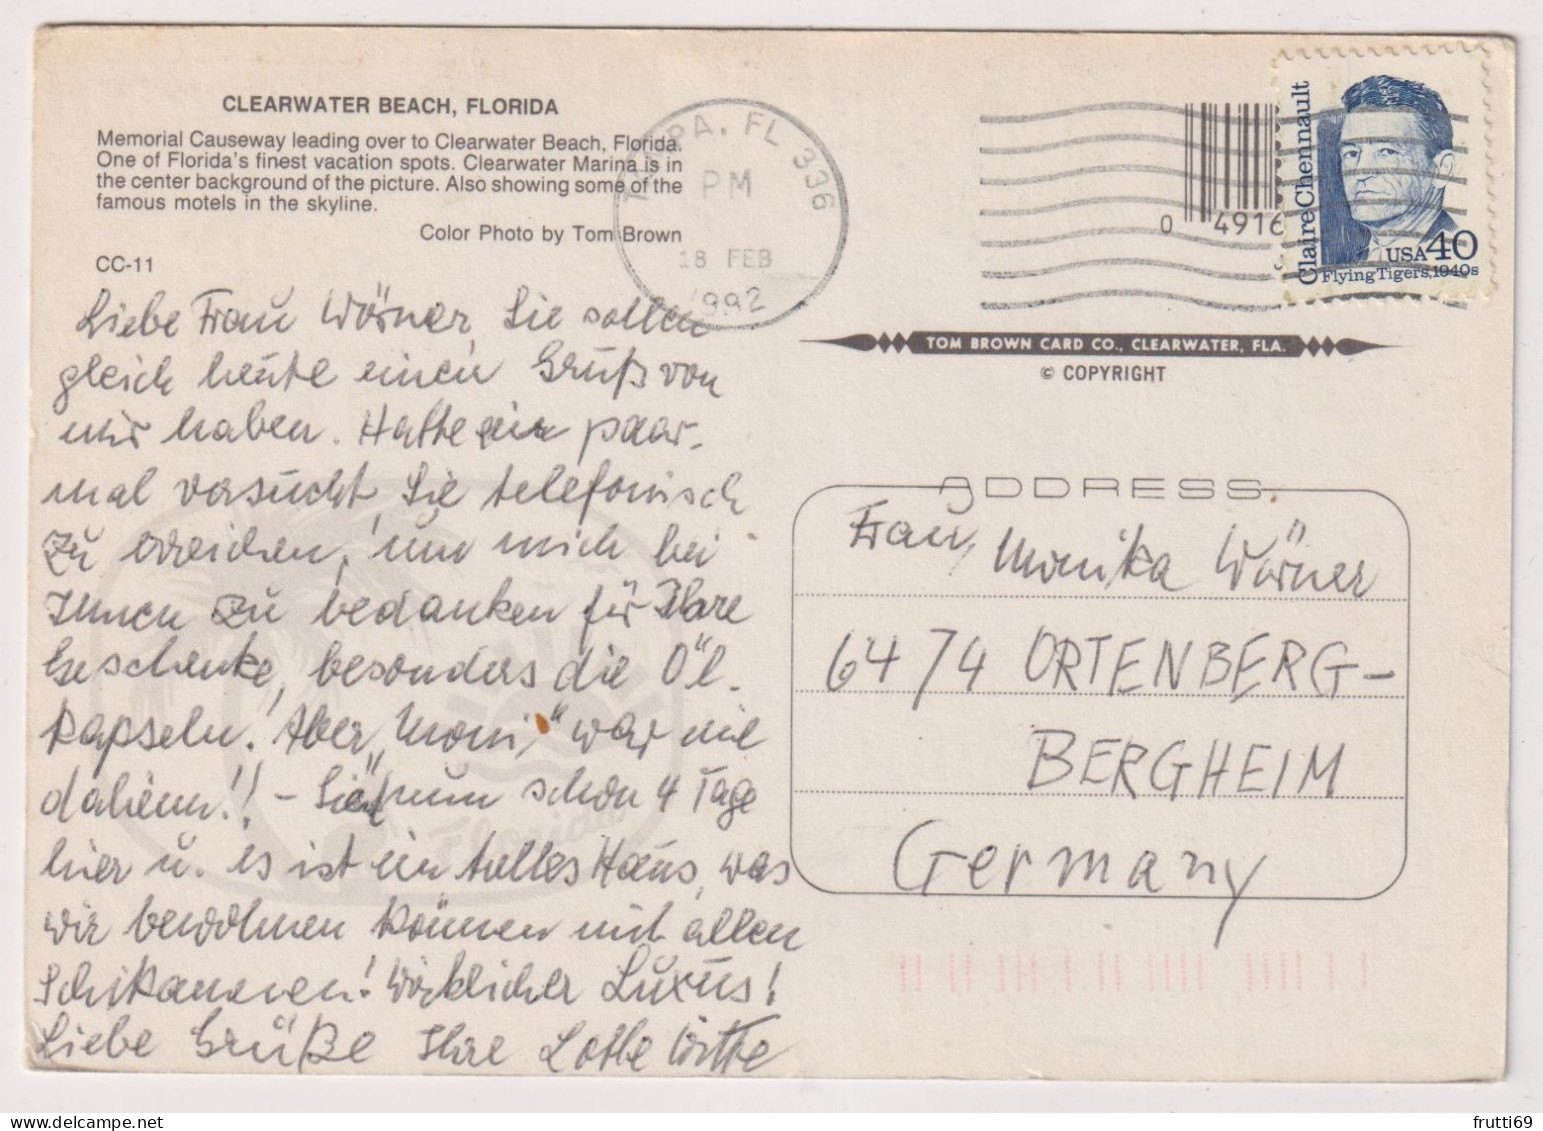 CLEARWATER BEACH, FLORIDA
Memorial Causeway leading over to Clearwater Beach, Florida.
One of Florida's finest vacation spots. Clearwater Marina is in
the center background of the picture. Also showing some of the
famous motels in the skyline.
Color Photo by Tom Brown
CC-11
TAMPA, FL 336
PM
18 FEB
1992
0 4916
Claire Chennault
USA 40
Flying Tigers, 1940s
TOM BROWN CARD CO., CLEARWATER, FLA.
© COPYRIGHT
Liebe Frau Wörner, Sie sollen
gleich heute einen Gruß von
mir haben. Hatte ein paar-
mal versucht, Sie telefonisch
zu erreichen, um mich bei
Ihnen zu bedanken für Ihre
Geschenke, besonders die Öl-
kapseln! Aber „Moni" war nie
daheim!! – Sind nun schon 4 Tage
hier u. es ist ein tolles Haus, was
wir bewohnen können mit allen
Schikanen! Wirklicher Luxus!
Liebe Grüße Ihre Lotte Witte
Florida
ADDRESS
Frau, Monika Wörner
6474 ORTENBERG-
BERGHEIM
Germany
frutti69